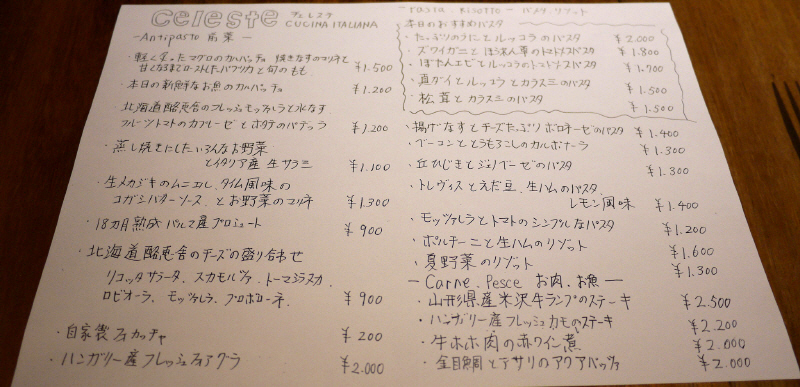 celeste チェレステ
CUCINA ITALIANA
—Antipasto 前菜—
・軽く炙ったマグロのカルパッチョ 焼きなすのマリネと
甘くなるまでローストしたパプリカと旬のもも ¥1.500
・本日の新鮮なお魚のカルパッチョ ¥1.200
・北海道酪恵舎のフレッシュモッツァレラと水なす
フルーツトマトのカプレーゼとホタテのパデッラ ¥1.200
・蒸し焼きにしたいろんなお野菜
とイタリア産生サラミ ¥1.100
・生メカジキのムニエル、タイム風味の
コガシバターソース、とお野菜のマリネ ¥1.300
・18カ月熟成パルマ産プロシュート ¥900
・北海道酪恵舎のチーズの盛り合わせ
リコッタサラータ、スカモルツァ、トーマシラヌカ、
ロビオーラ、モッツァレラ、プロボローネ、 ¥900
・自家製フォカッチャ ¥200
・ハンガリー産フレッシュフォアグラ ¥2.000
—Pasta, Risotto— パスタ、リゾット
本日のおすすめパスタ
・たっぷりのうにとルッコラのパスタ ¥2.000
・ズワイガニとほうれん草のトマトソースパスタ ¥1.800
・ぼたんエビとルッコラのトマトソースパスタ ¥1.700
・真ダイとルッコラとカラスミのパスタ ¥1.500
・松茸とカラスミのパスタ ¥1.500
・揚げなすとチーズたっぷりボロネーゼのパスタ ¥1.400
・ベーコンととうもろこしのカルボナーラ ¥1.300
・丘ひじきとジェノベーゼのパスタ ¥1.300
・トレヴィスとえだ豆、生ハムのパスタ、
レモン風味 ¥1.400
・モッツァレラとトマトのシンプルなパスタ ¥1.200
・ポルチーニと生ハムのリゾット ¥1.600
・夏野菜のリゾット ¥1.300
—Carne, Pesce お肉、お魚—
・山形県産米沢牛ランプのステーキ ¥2.500
・ハンガリー産フレッシュカモのステーキ ¥2.200
・牛ホホ肉の赤ワイン煮 ¥2.000
・金目鯛とアサリのアクアパッツァ ¥2.000